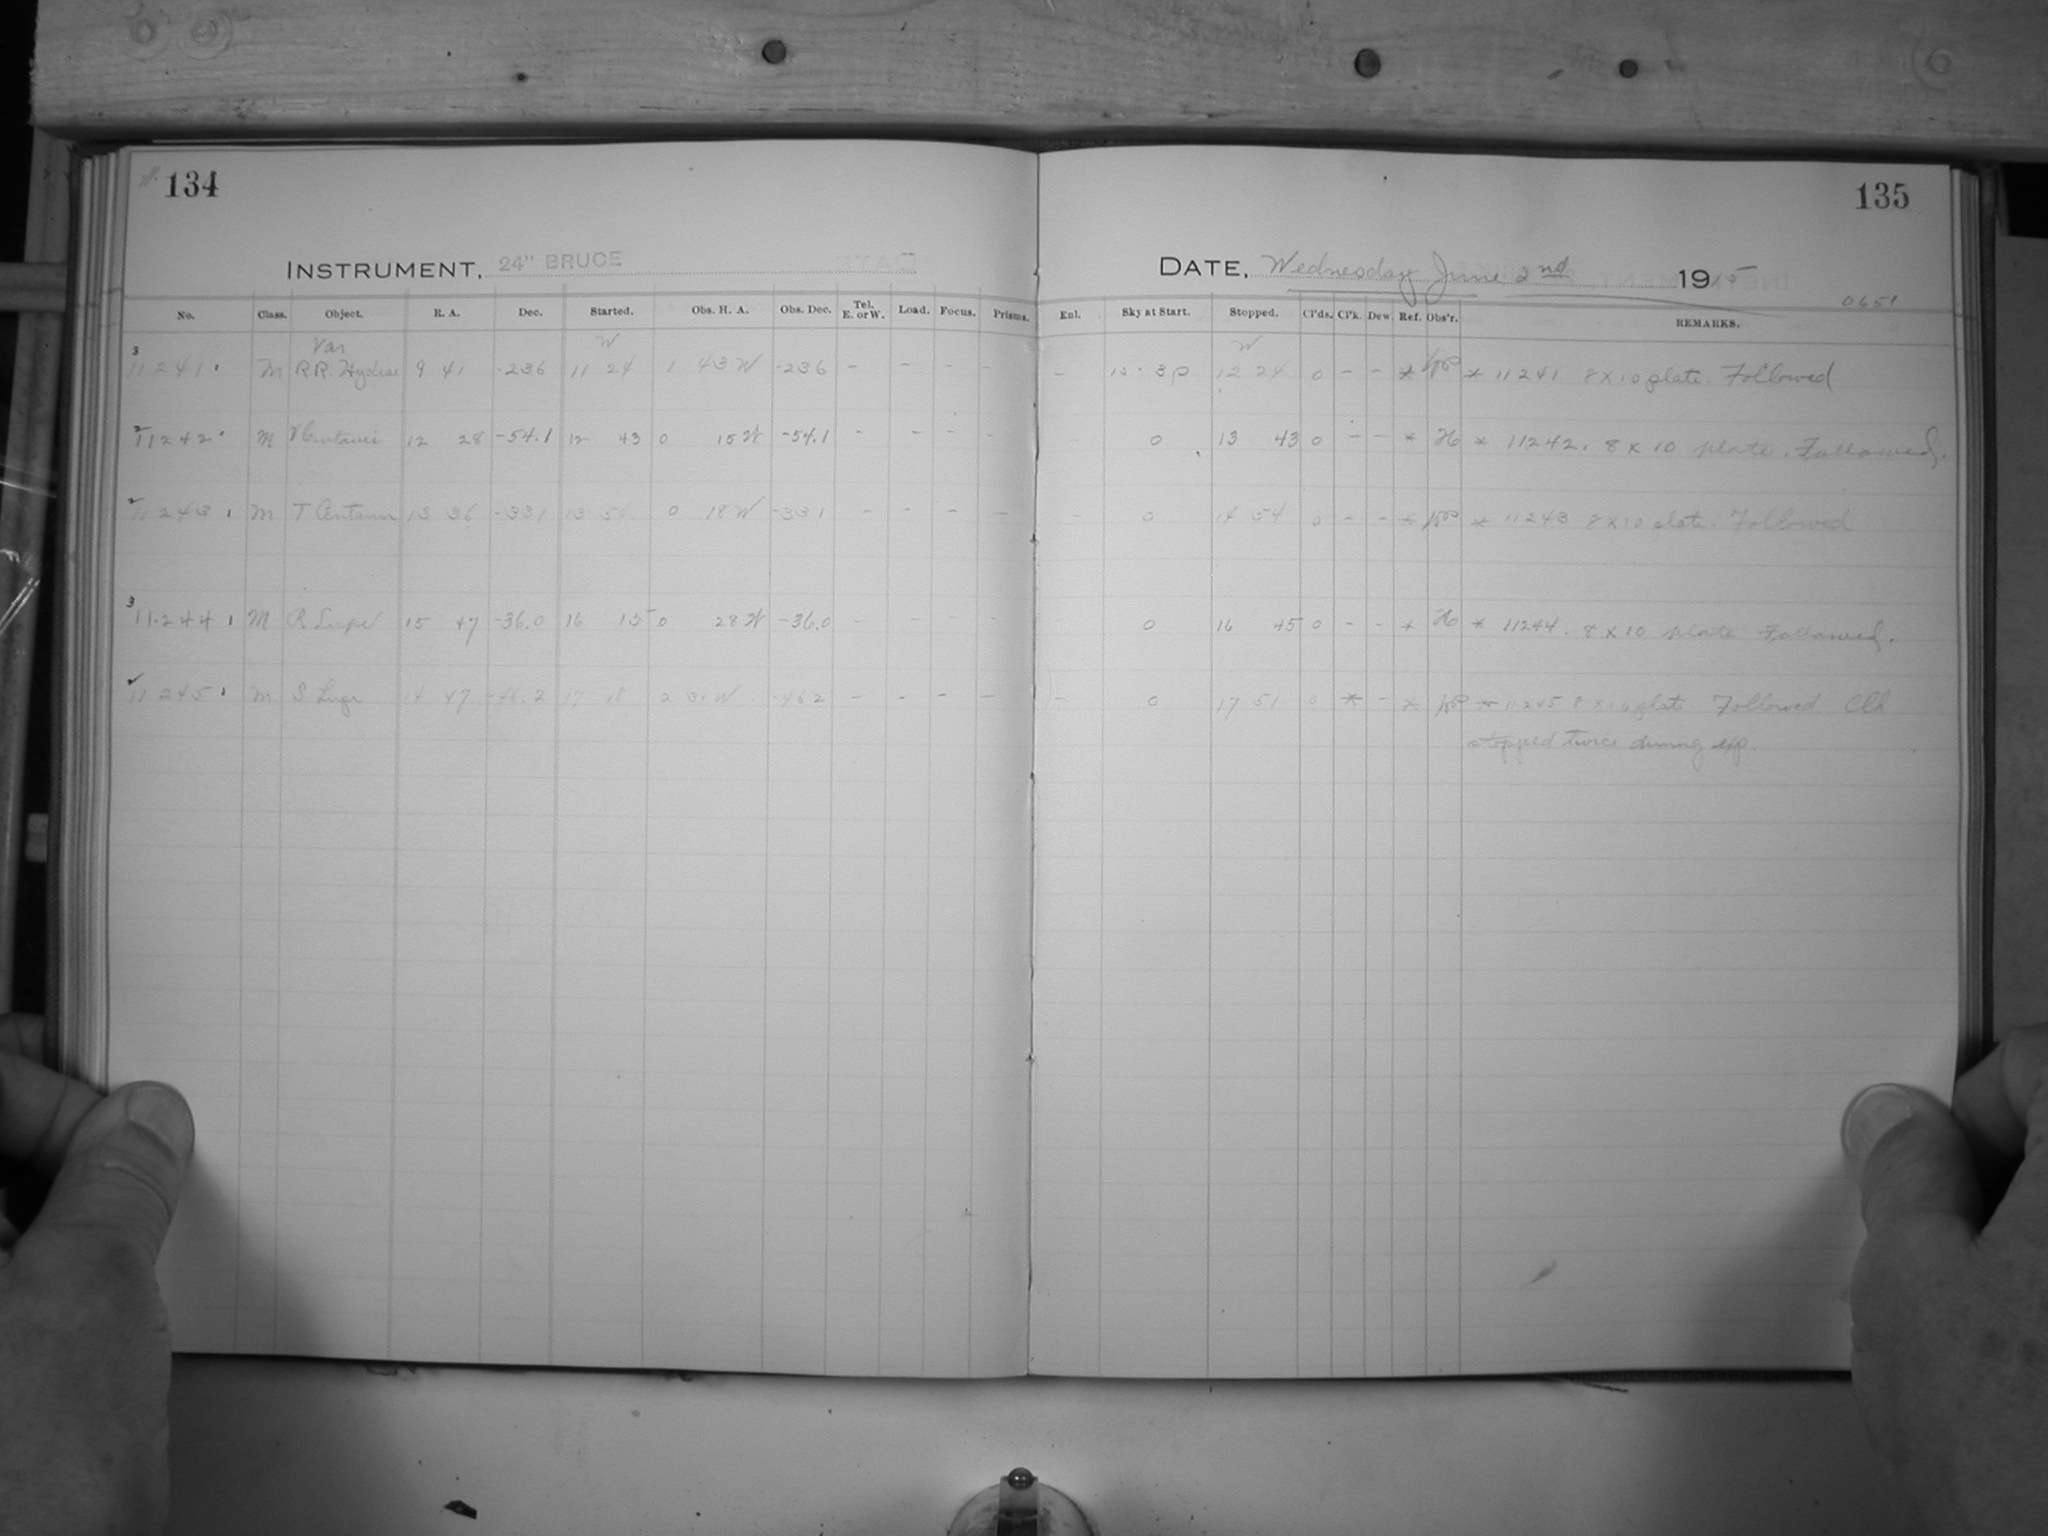 134
135
INSTRUMENT, 24" BRUCE
DATE, Wednesday June 2nd 1915
0651
No. Class. Object. R. A. Dec. Started. Obs. H. A. Obs. Dec. Tel. E. or W. Load. Focus. Prisms. Enl. Sky at Start. Stopped. Cl'ds. Cl'k. Dew. Ref. Obs'r. REMARKS.
Var W W
3 11241 M RR. Hydrae 9 41 -236 11 24 1 43 W -236 - - - - - 12 24 0 - - * * 11241 8 x 10 plate. Followed
11242 M 12 28 -54.1 12 43 0 15 W -54.1 - - - - 0 13 43 0 - - * * 11242. 8 x 10 plate. Followed.
11243 M T 13 36 -331 13 54 0 18 W -331 - - - - - 0 14 54 0 - - * * 11243 8 x 10 plate. Followed
3 11244 M R Lupi 15 47 -36.0 16 15 0 28 W -36.0 - - - - 0 16 45 0 - - * * 11244. 8 x 10 plate Followed.
11245 M S Lupi 14 47 -46.2 17 18 2 31 W -462 - - - - - 0 17 51 0 * - * * 11245 8 x 10 plate Followed. Clk
stopped twice during exp.